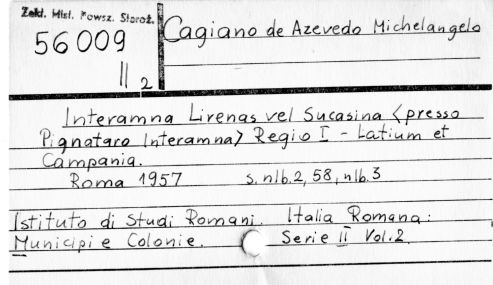 Zakł. Hist. Powsz. Staroż.
56009
II 2
Cagiano de Azevedo Michelangelo
Interamna Lirenas vel Sucasina <presso
Pignataro Interamna> Regio I - Latium et
Campania.
Roma 1957 s. nlb. 2, 58, nlb. 3
Istituto di Studi Romani. Italia Romana:
Municipi e Colonie. Serie II Vol. 2.